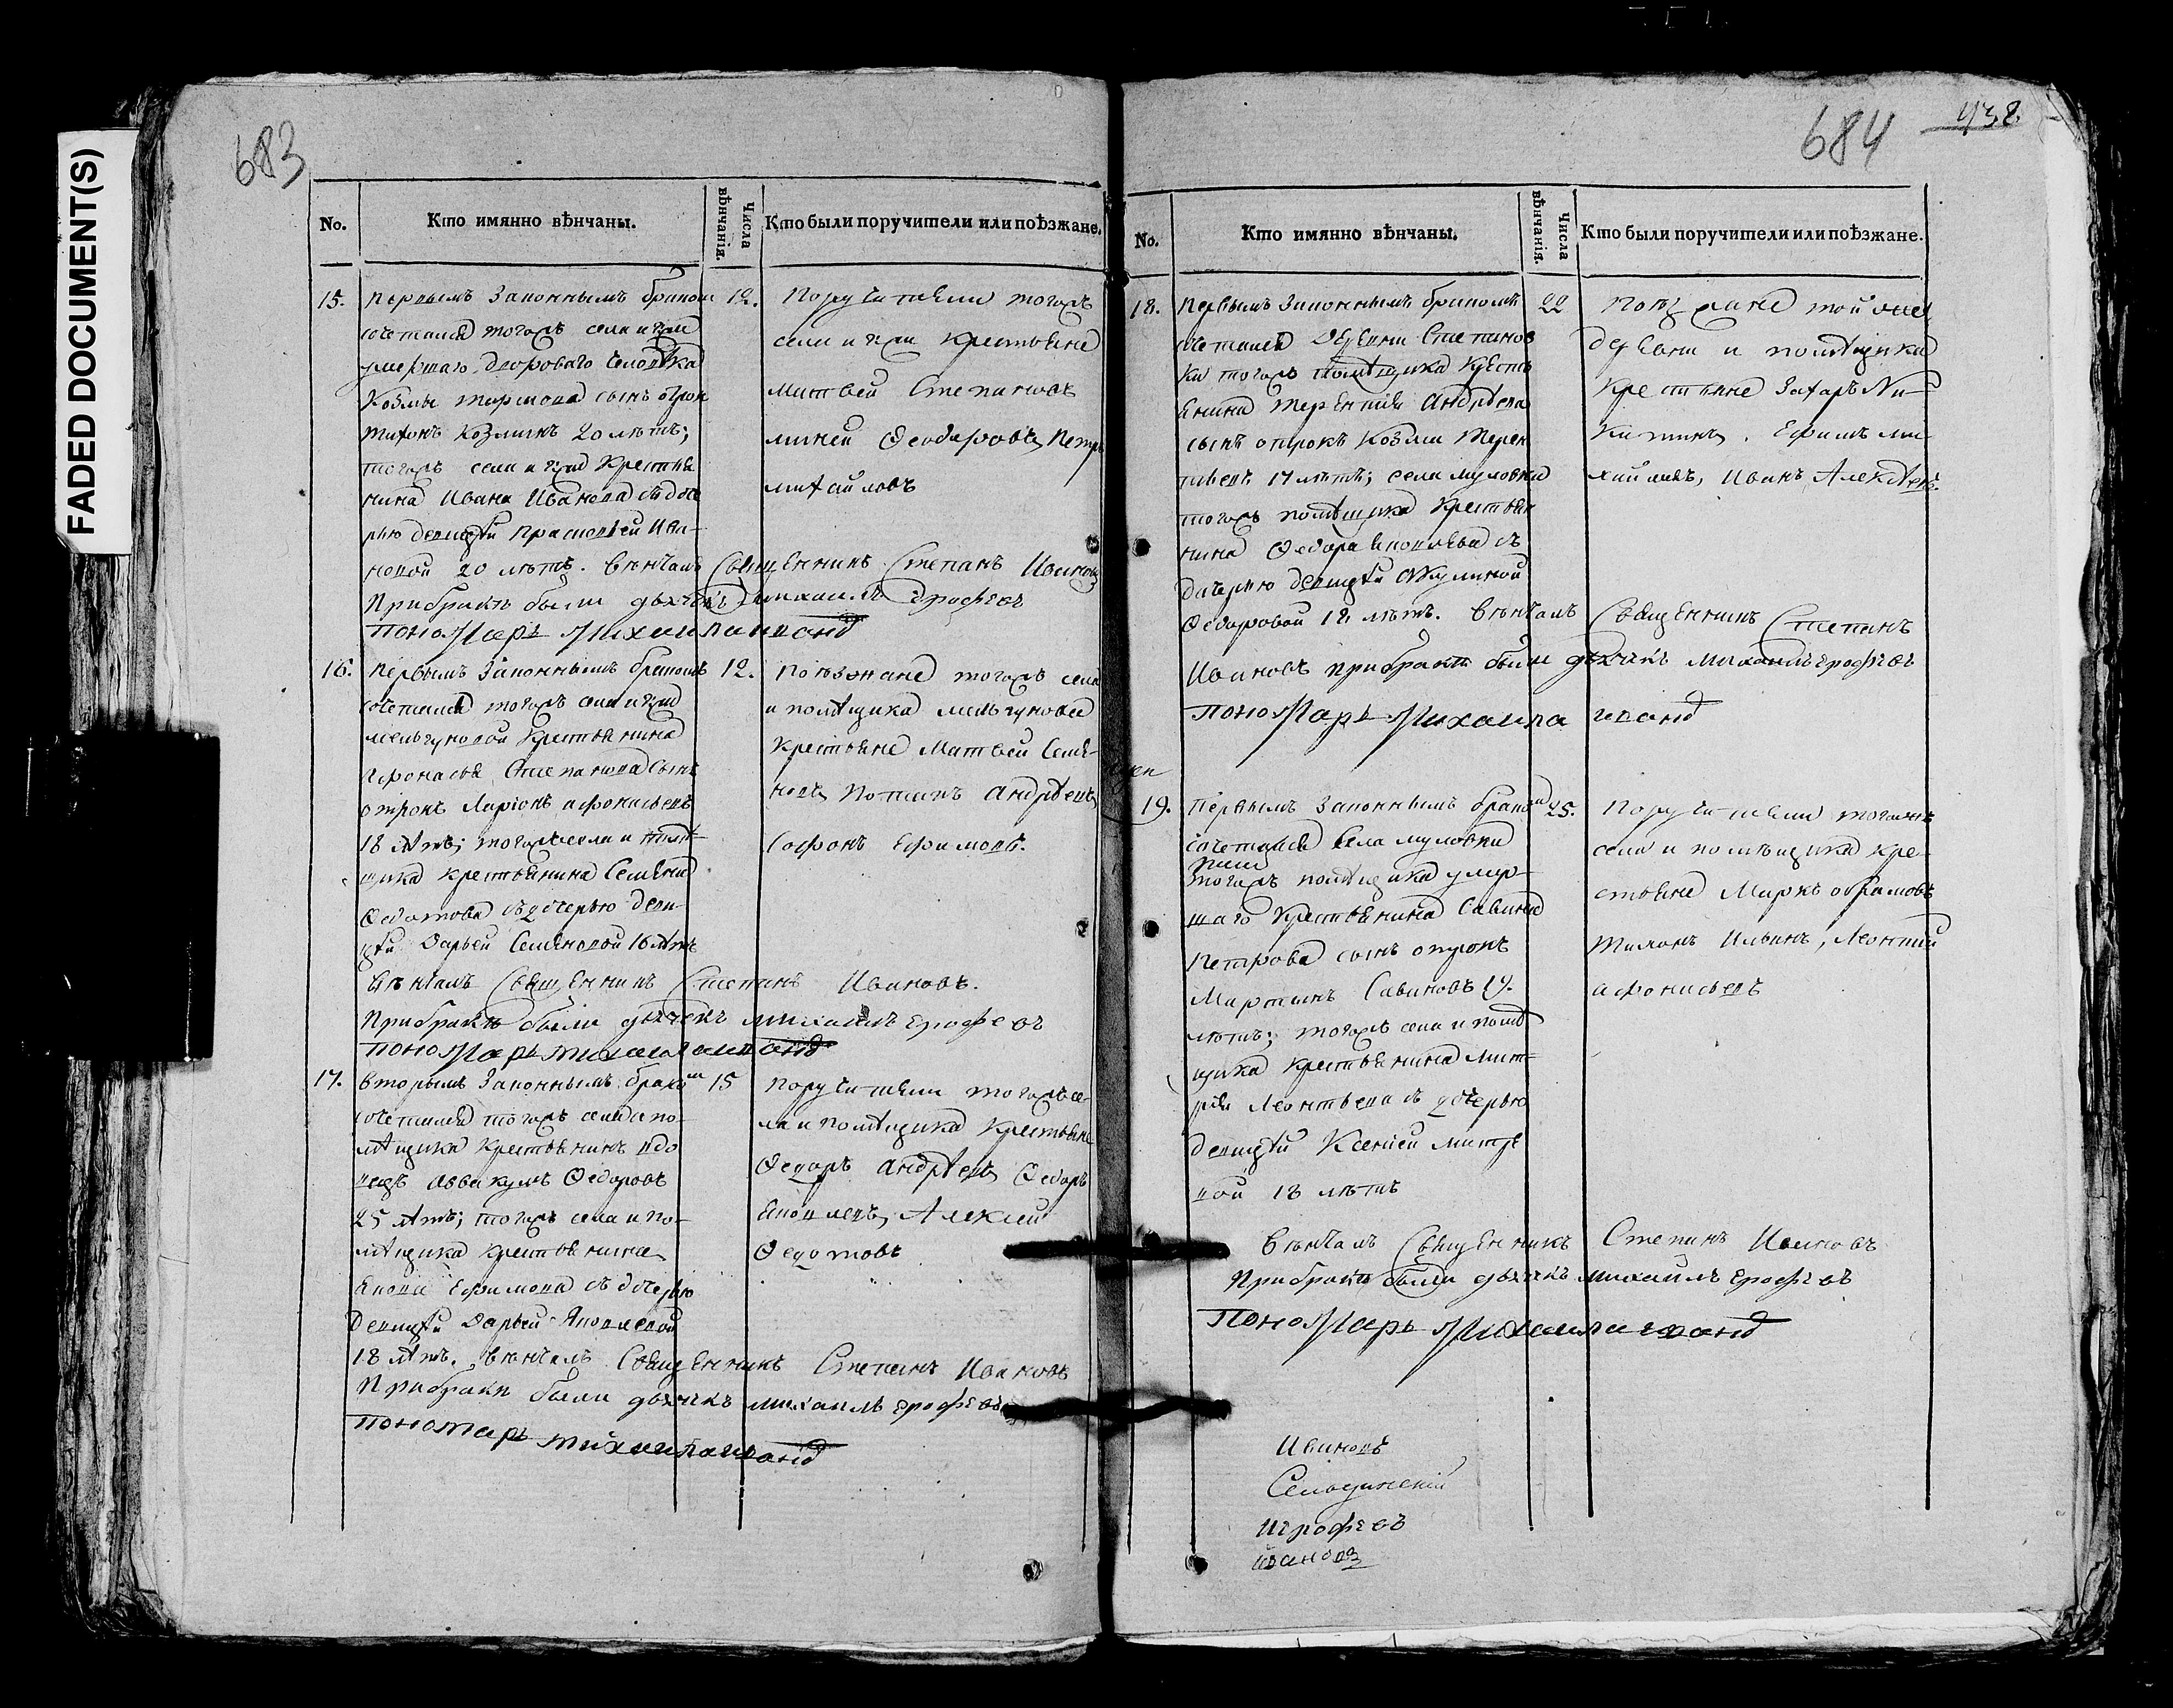 FADED DOCUMENT(S)
683
No.
Кто имянно вѣнчаны.
Числа вѣнчанія.
Кто были поручители или поѣзжане.
15.
Первымъ Законнымъ бракомъ
12.
сочетался тогожъ села
умершаго дворового человѣка
Козмы сынъ отрок
Тихонъ Козминъ 20 лѣтъ;
тогожъ села крестья
нина Ивана Иванова съ доче
рью девицей Прасковьей Ива-
новой 20 лѣтъ. Вѣнчалъ Священникъ Степанъ Ивановъ
При бракѣ были дьячекъ михаилъ Ерофеевъ
пономарь михаила ивановъ
Поручители тогожъ
села крестьяне
Матвей Степановъ
Федоровъ, Петръ
михайловъ
16.
Первымъ Законнымъ бракомъ
12.
сочетался тогожъ села
мельгуновой крестьянина
Афонасья Степанова сынъ
отрокъ Ларіонъ афонасьевъ
18 лѣтъ; тогожъ села и помѣ-
щика крестьянина Семена
Федотова съ дочерью деви-
цей Дарьей Семеновой 16 лѣтъ
вѣнчалъ Священникъ Степанъ Ивановъ.
При бракѣ были дьячекъ михаилъ Ерофеевъ
пономарь михаила ивановъ
Поѣзжане тогожъ села
и помѣщика мельгунова
крестьяне Матвей Семе-
новъ, Потапъ Андрѣевъ,
Софонъ Ефимовъ.
17.
Вторымъ Законнымъ бракомъ
15
сочетался тогожъ села и по-
мѣщика крестьянинъ вдо
вецъ Аввакумъ Федоровъ
25 лѣтъ; тогожъ села и по-
мѣщика крестьянина
Якова Ефимова съ дочерью
девицей Дарьей Яковлевой
18 лѣтъ. вѣнчалъ Священникъ Степанъ Ивановъ
При бракѣ были дьячекъ михаилъ Ерофеевъ
пономарь михаила ивановъ
Поручители тогожъ се-
ла и помѣщика крестьяне
Федоръ Андрѣевъ, Федоръ
Яковлевъ, Алексей
Федотовъ
684
438
No.
Кто имянно вѣнчаны.
Числа вѣнчанія.
Кто были поручители или поѣзжане.
18.
Первымъ Законнымъ бракомъ
22
сочетался Деревни Степанов
ки тогожъ помѣщика крестья
янина Терентія Андрѣева
сынъ отрокъ Козма Терен
тьевъ 17 лѣтъ; села муловки
тогожъ помѣщика крестьян
нина Федора Яковлева съ
дочерью девицей Акулиной
Федоровой 18 лѣтъ. Вѣнчалъ Священникъ Степанъ
Ивановъ при бракѣ были дьячекъ михаилъ Ерофеевъ
пономарь михаила ивановъ
Поѣзжане той же
деревни и помѣщика
крестьяне Захаръ Ни-
китинъ, Ефимъ ми-
хайловъ, Иванъ Алексѣевъ.
19.
Первымъ Законнымъ бракомъ
25.
сочетался Села муловки
тогожъ помѣщика умер-
шаго крестьянина Савина
Петрова сынъ отрокъ
Мартынъ Савиновъ 19.
лѣтъ; тогожъ села и помѣ
щика крестьянина Мит-
рія Леонтьева съ дочерью
девицей Ксеніей митре
вой 18 лѣтъ
Вѣнчалъ Священникъ Степанъ Ивановъ
При бракѣ были дьячекъ михаилъ Ерофеевъ
пономарь михаила ивановъ
Поручители тогожъ
села и помѣщика кре-
стьяне Маркъ Абрамовъ
Тимонъ Ильинъ, Леонтій
афонасьевъ
Ивановъ
Ерофеевъ
ивановъ